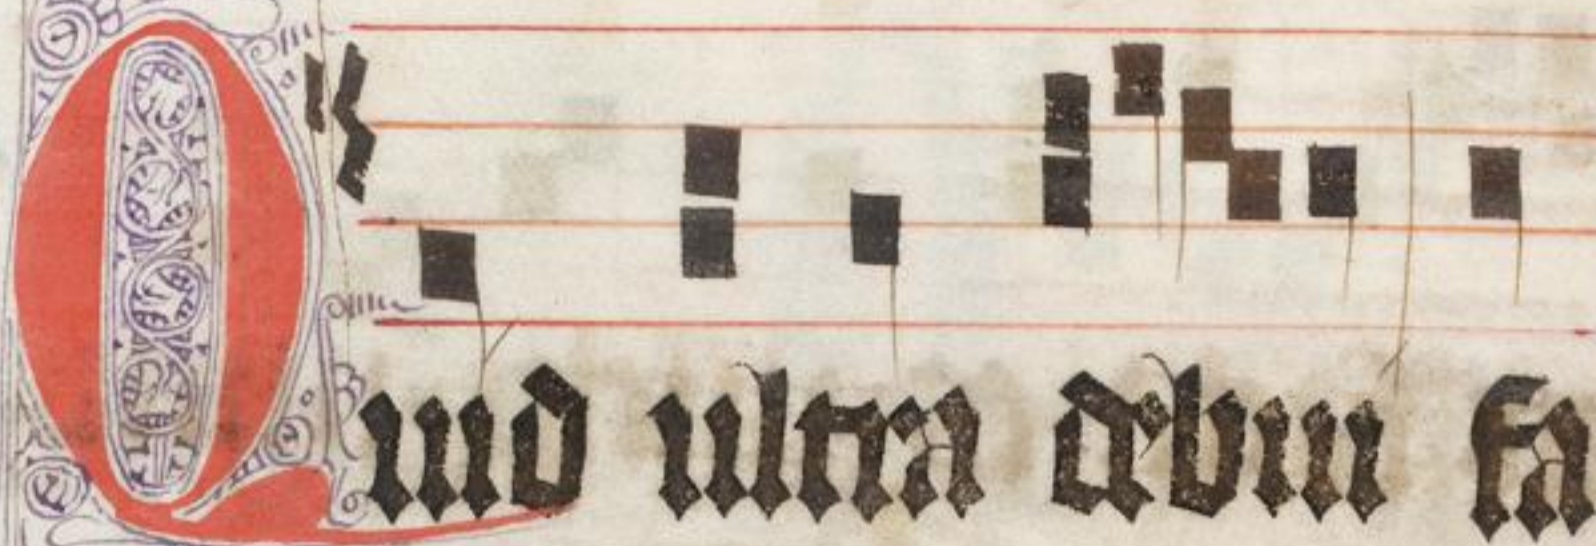 Quid ultra debui fa